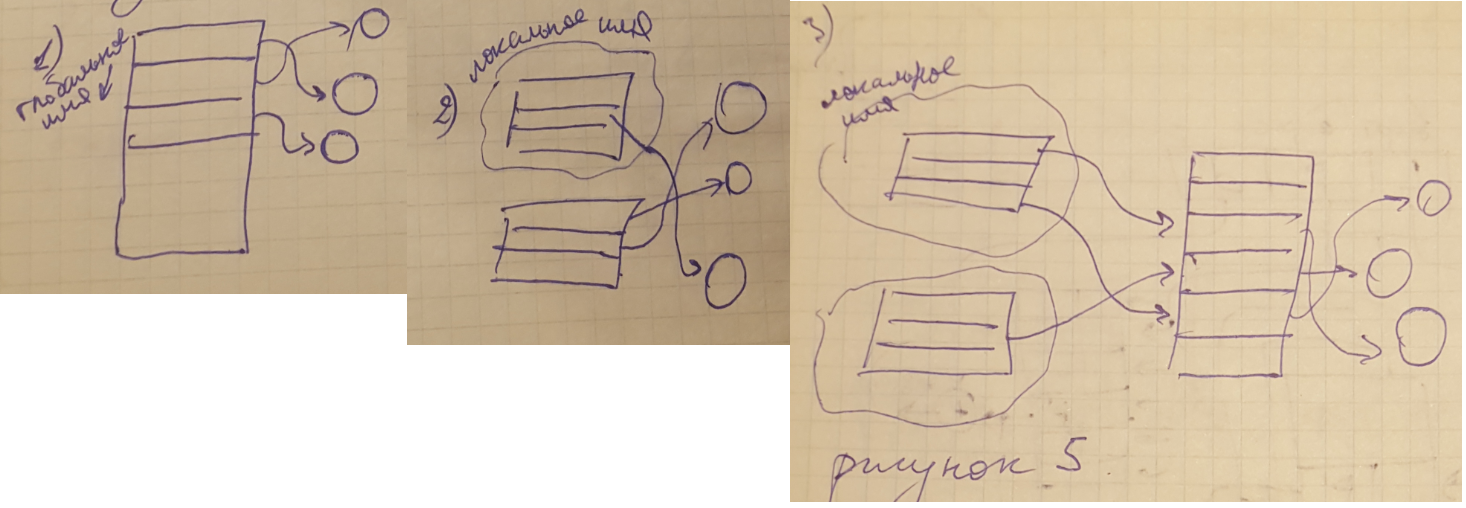 1)
глобальное
имя
2)
локальное имя
3)
локальное
имя
рисунок 5